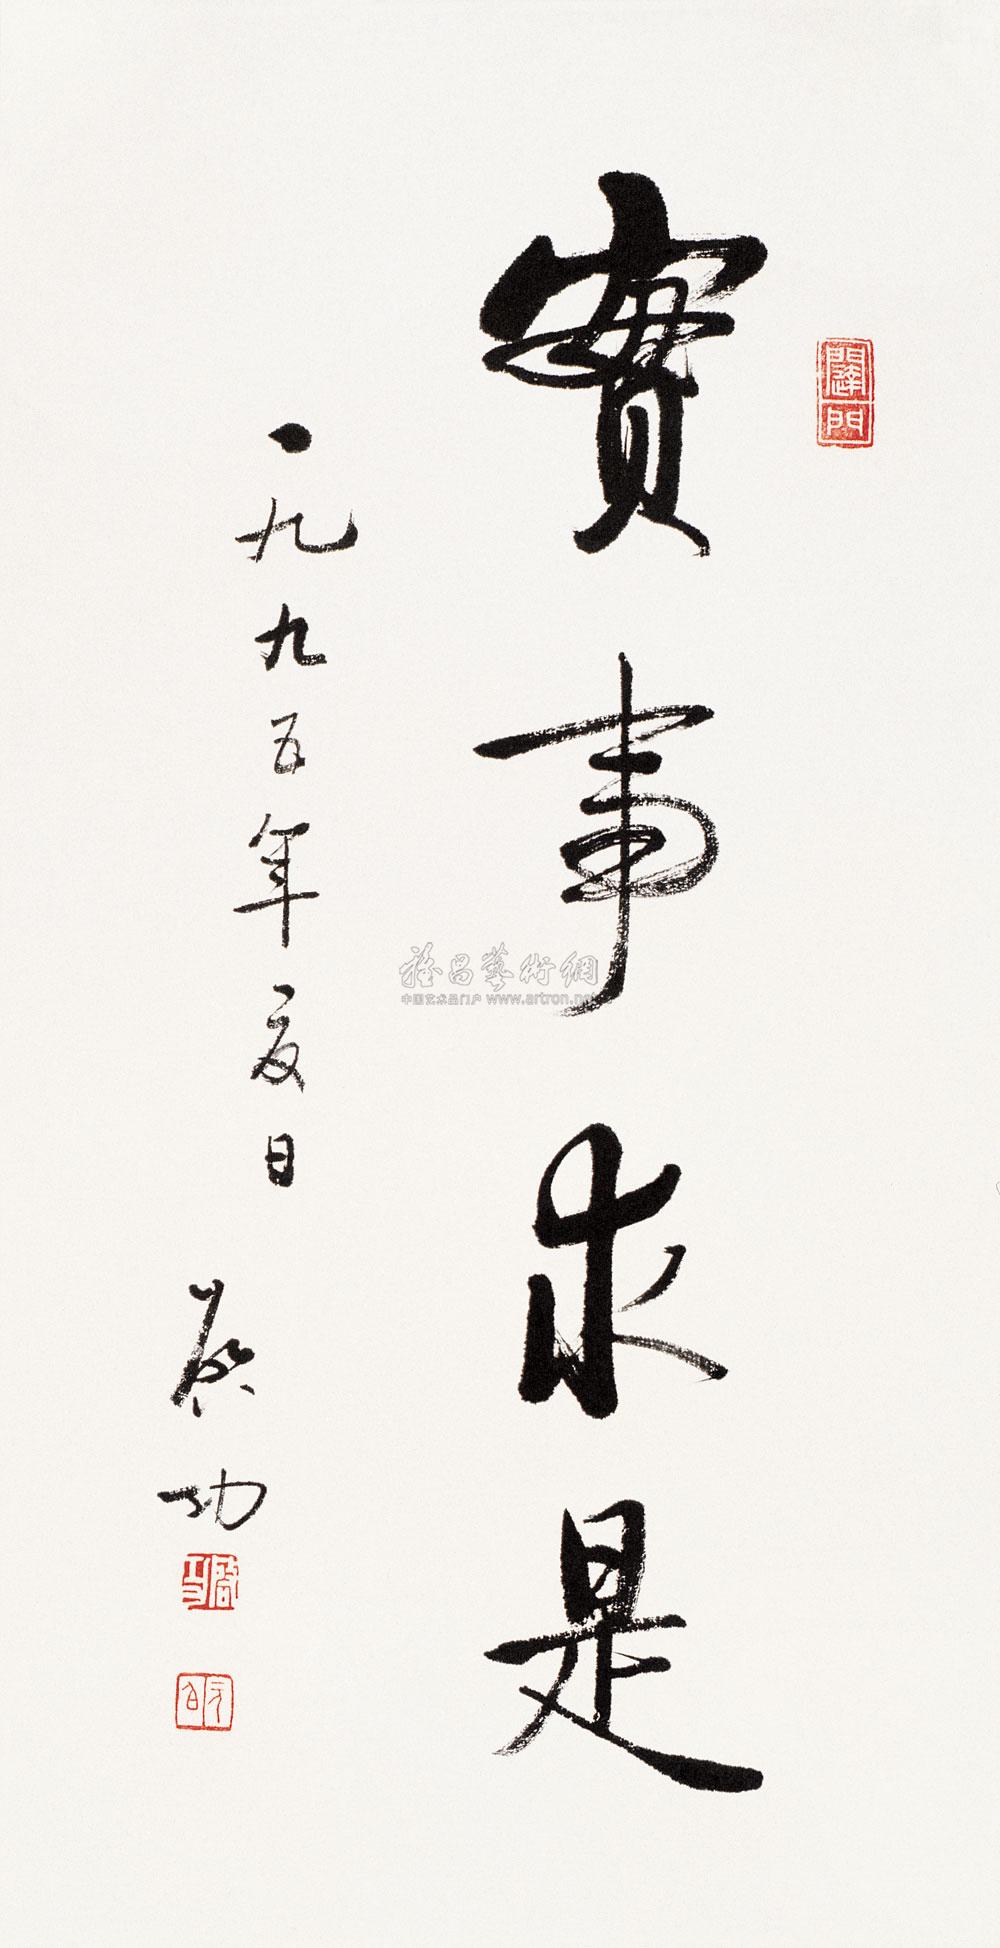 實事求是
一九九五年夏日
启功
雅昌藝術網
中国艺术品门户 www.artron.net